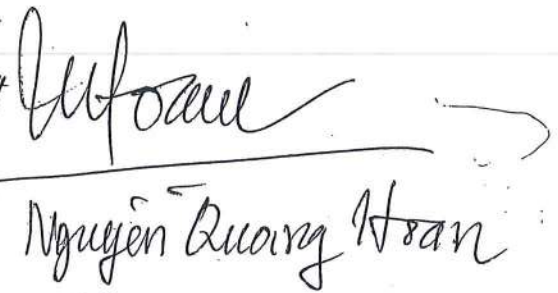 Nguyễn Quang Hoan